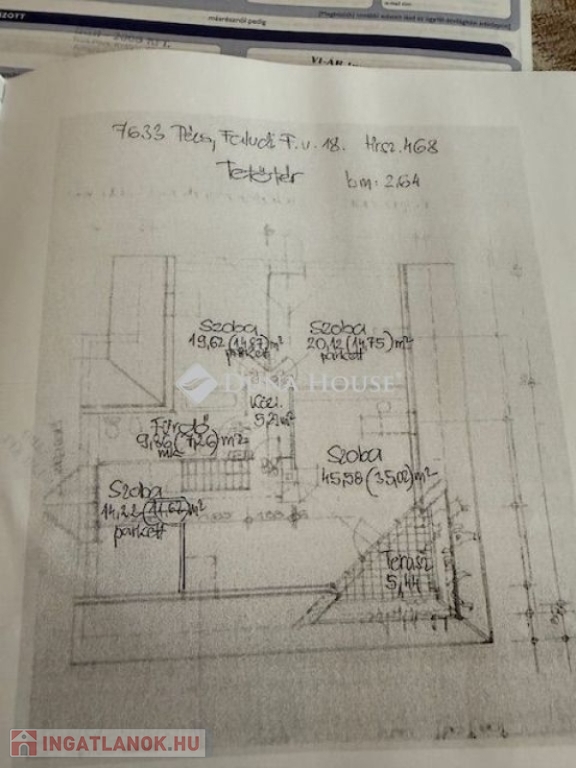 7633 Pécs, Faludi F. u. 18. Hrsz. 468
Tetőtér
bm: 2,64
Szoba
19,62 (14,87) m²
parkett
Szoba
20,12 (14,75) m²
parkett
DUNA HOUSE
Közl.
5,21 m²
Fürdő
9,86 (7,26) m²
mk
Szoba
45,58 (35,02) m²
Szoba
14,22 (11,62) m²
parkett
Terasz
5,44
INGATLANOK.HU